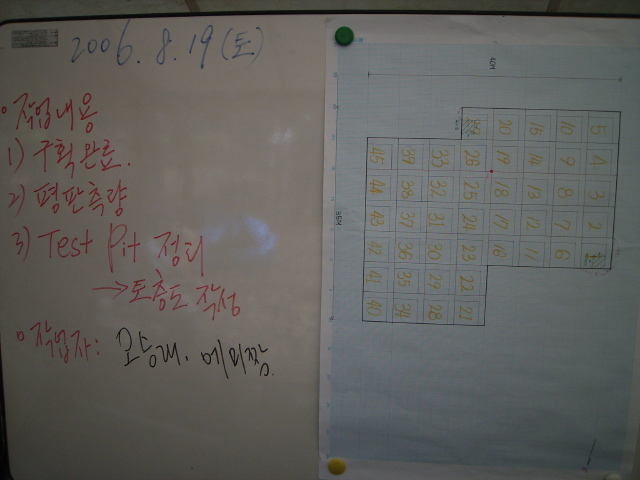 2006. 8. 19 (토)
○ 작업내용
1) 구획완료.
2) 평판측량
3) Test Pit 정리
→ 토층도 작성
○ 작업자:
5 10 15 20
4 9 14 19 26 33 39 45
3 8 13 18 25 32 38 44
2 7 12 17 24 31 37 43
1 6 11 16 23 30 36 42
22 29 35 41
21 28 34 40